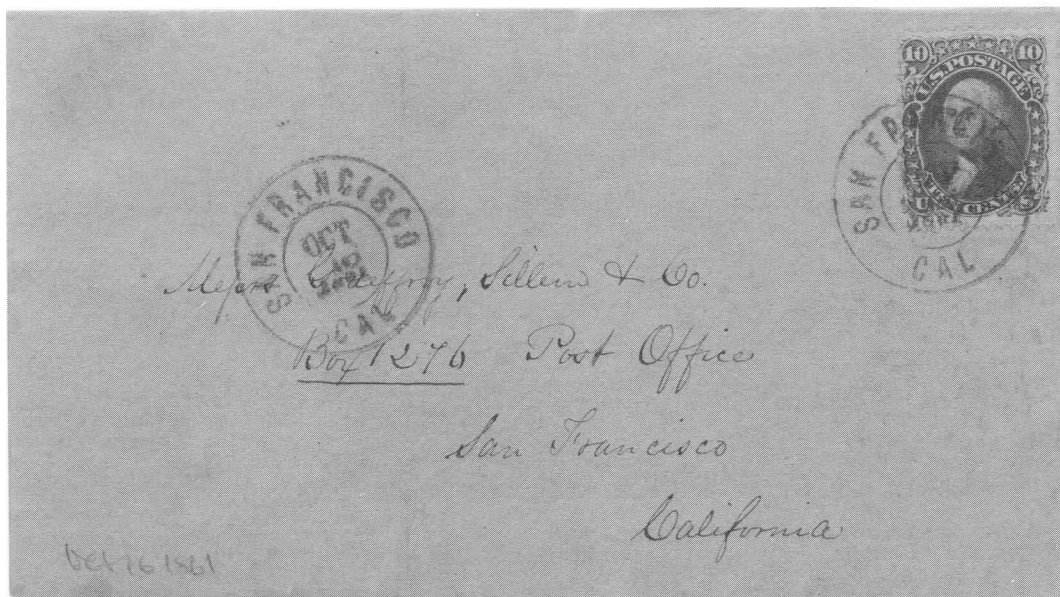 10 10
U.S. POSTAGE
TEN CENTS
SAN FR
CAL
SAN FRANCISCO
OCT
CAL
Messrs Godeffroy, Sillem & Co.
Box 1276 Post Office
San Francisco
California
Oct 16 1861